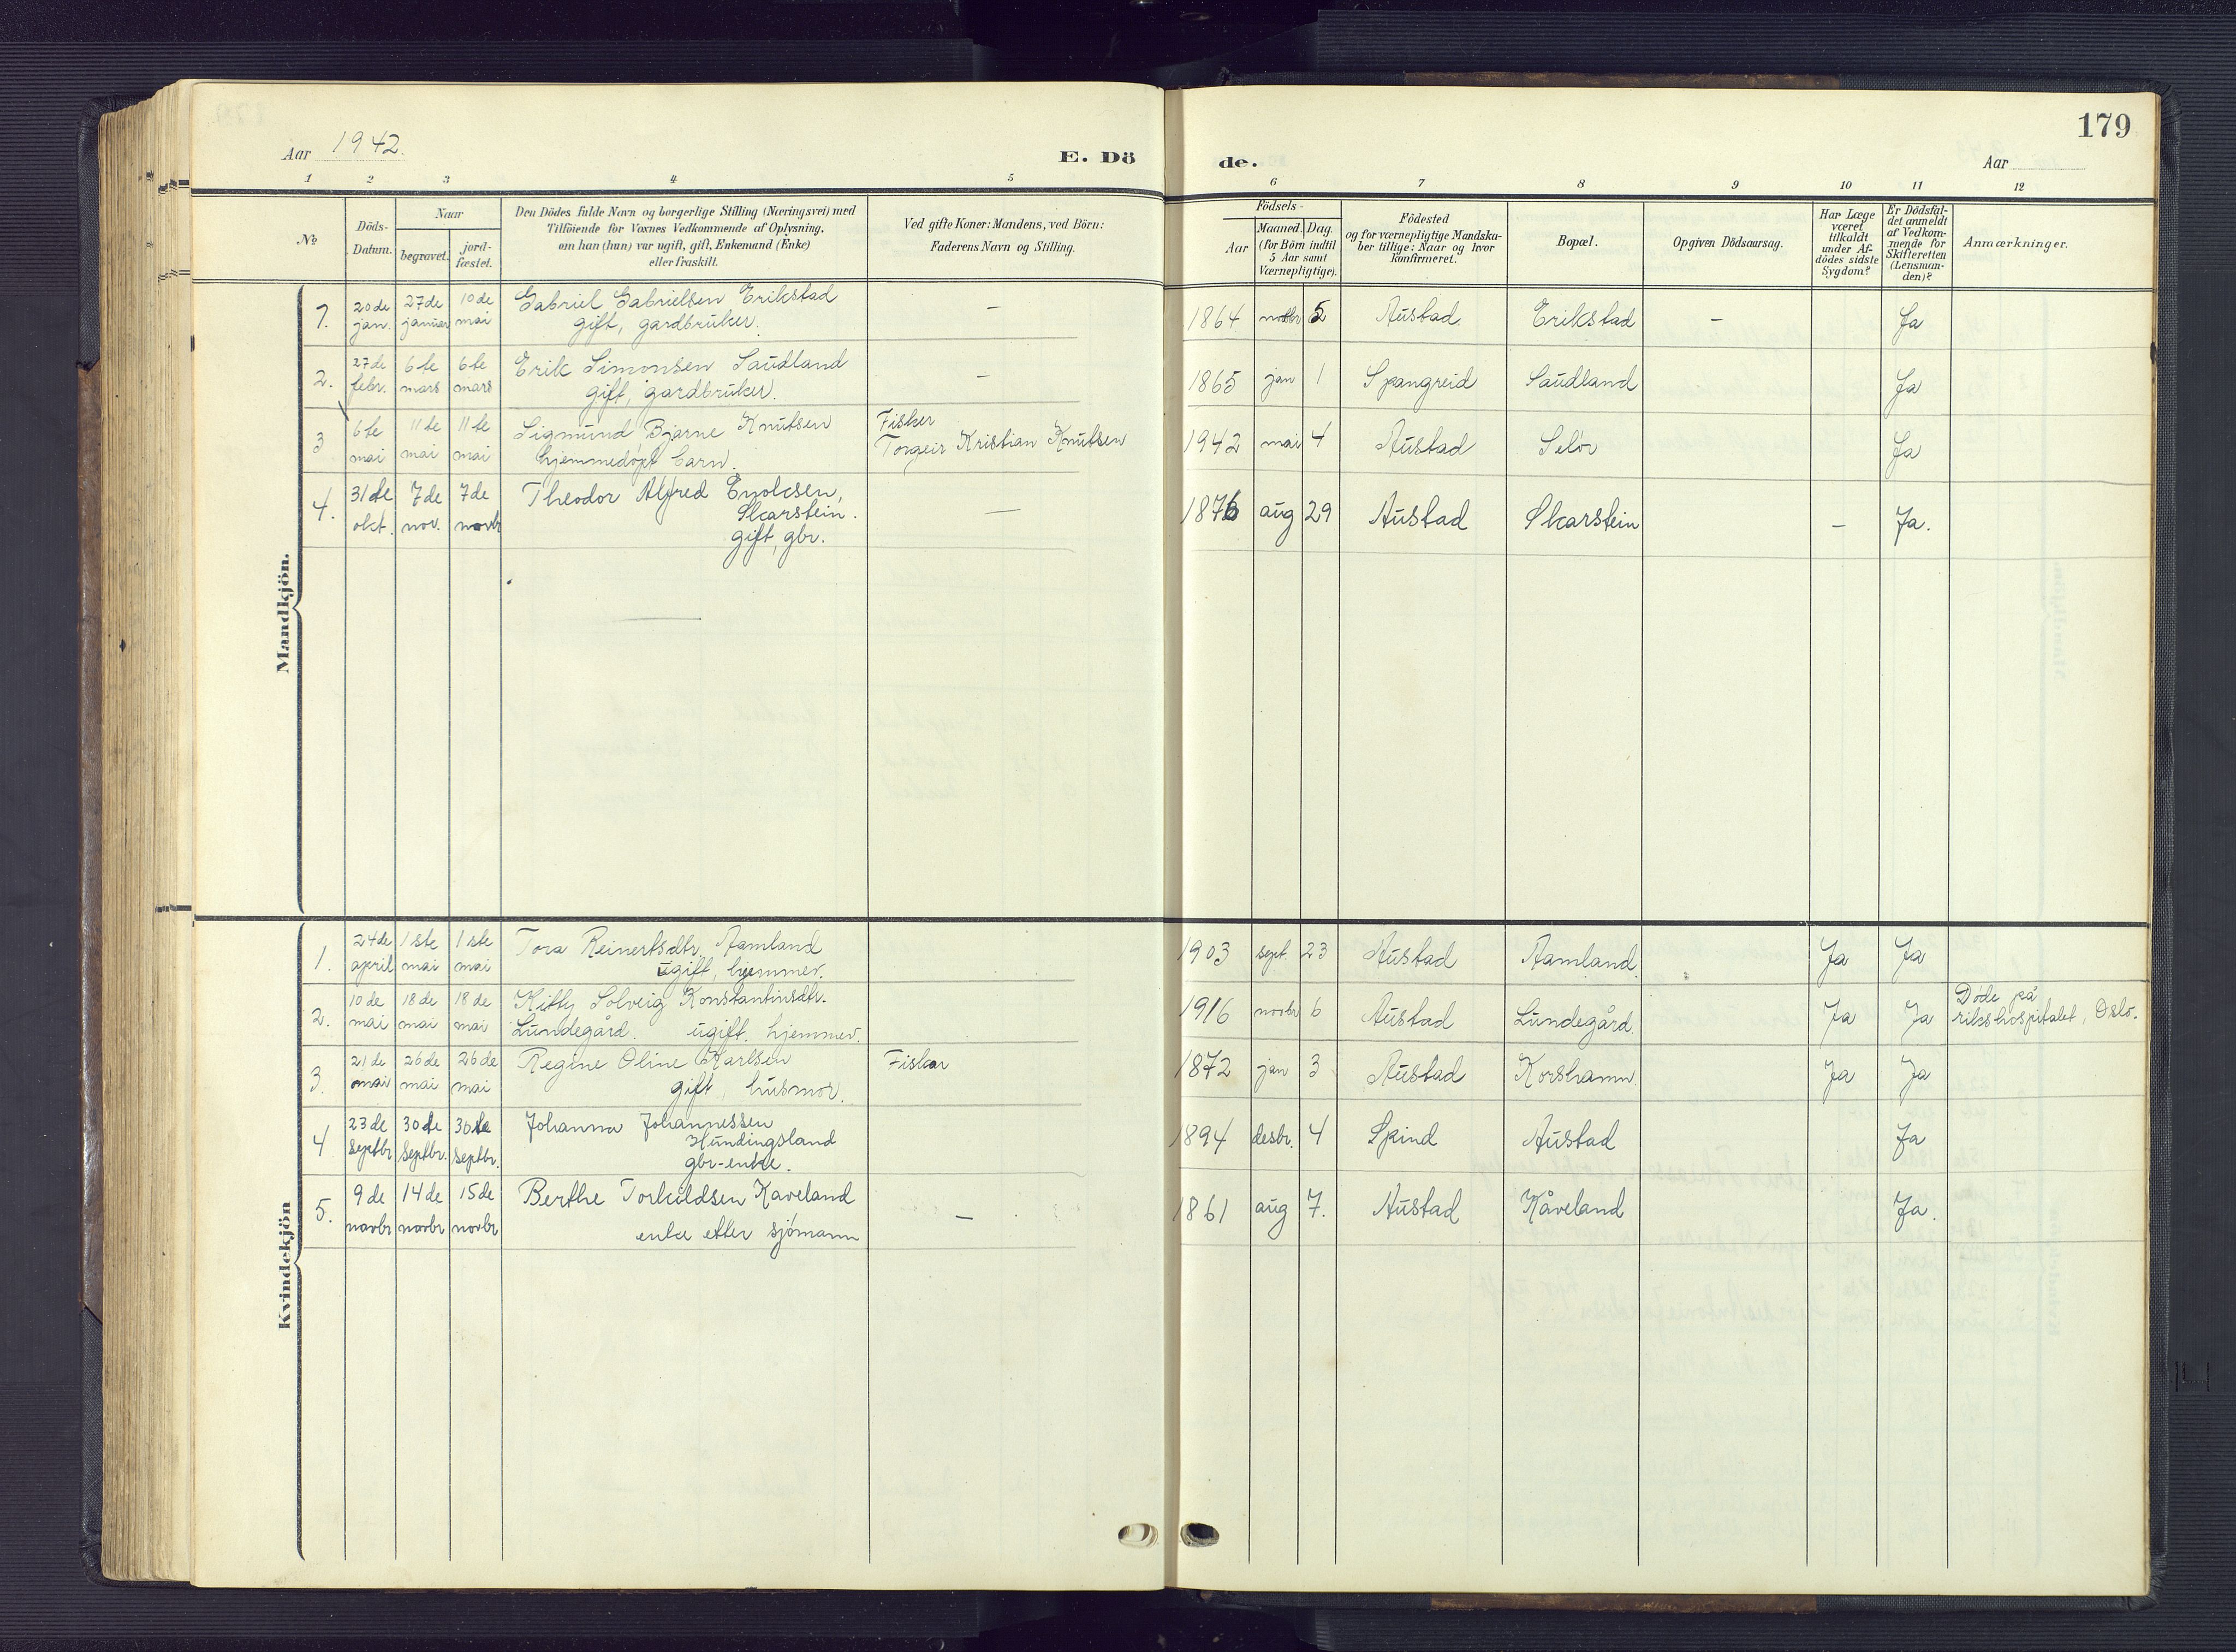 Aar 1942.
E. Dö
de.
179
Aar
1 2 3 4 5 6 7 8 9 10 11 12
No.
Döds-
Datum.
Naar
begravet.
jord-
fæstet.
Den Dödes fulde Navn og borgerlige Stilling (Næringsvei) med
Tilföiende for Voxnes Vedkommende af Oplysning,
om han (hun) var ugift, gift, Enkemand (Enke)
eller fraskilt.
Ved gifte Koner: Mandens, ved Börn:
Faderens Navn og Stilling.
Födsels-
Aar
Maaned. Dag.
(for Börn indtil
5 Aar samt
Værnepligtige).
Födested
og for værnepligtige Mandska-
ber tillige: Naar og hvor
konfirmeret.
Bopæl.
Opgiven Dödsaarsag.
Har Læge
været
tilkaldt
under Af-
dödes sidste
Sygdom?
Er Dödsfal-
det anmeldt
af Vedkom-
mende for
Skifteretten
(Lensman-
den)?
Anmærkninger.
Mandkjön.
1. 20de jan. 27de januar 10de mai Gabriel Gabrielsen Erikstad — 1864 novbr 5 Austad Erikstad — Ja
gift, gardbruker.
2. 27de febr. 6te mars 6te mars Erik Simonsen Saudland — 1865 jan 1 Spangreid Saudland Ja
gift, gardbruker.
3 6te mai 11te mai 11te mai Sigmund Bjarne Knutsen Fisker 1942 mai 4 Austad Selör Ja
hjemmedøpt barn. Torgeir Kristian Knutsen
4. 31de okt. 7de nov. 7de novbr Theodor Alfred Enoksen, — 1876 aug 29 Austad Skarstein — Ja.
Skarstein.
gift, gbr.
Kvindekjön
1. 24de april 1ste mai 1ste mai Tora Reinertsdtr. Aamland 1903 sept. 23 Austad Aamland. Ja Ja
ugift, hjemmev.
2. 10de mai 18de mai 18de mai Kitty Solveig Konstantinsdtr. 1916 novbr 6 Austad Lundegård. Ja Ja Døde på
Lundegård. ugift. hjemmev. rikshospitalet, Oslo.
3. 21de mai 26de mai 26de mai Regine Oline Karlsen Fisker 1872 jan 3 Austad Korshamn. Ja Ja
gift, husmor.
4 23de septbr 30de septbr. 30te septbr. Johanna Johannessen 1894 desbr. 4 Spind Austad Ja
Hundingsland
gbr-enke.
5. 9de novbr 14de novbr 15de novbr Berthe Torkildsen Kaveland — 1861 aug 7. Austad Kåveland Ja.
enke etter sjömann